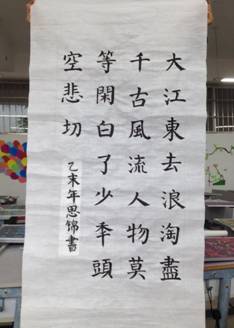 大江東去浪淘盡
千古風流人物莫
等閑白了少年頭
空悲切
乙未年思錦書